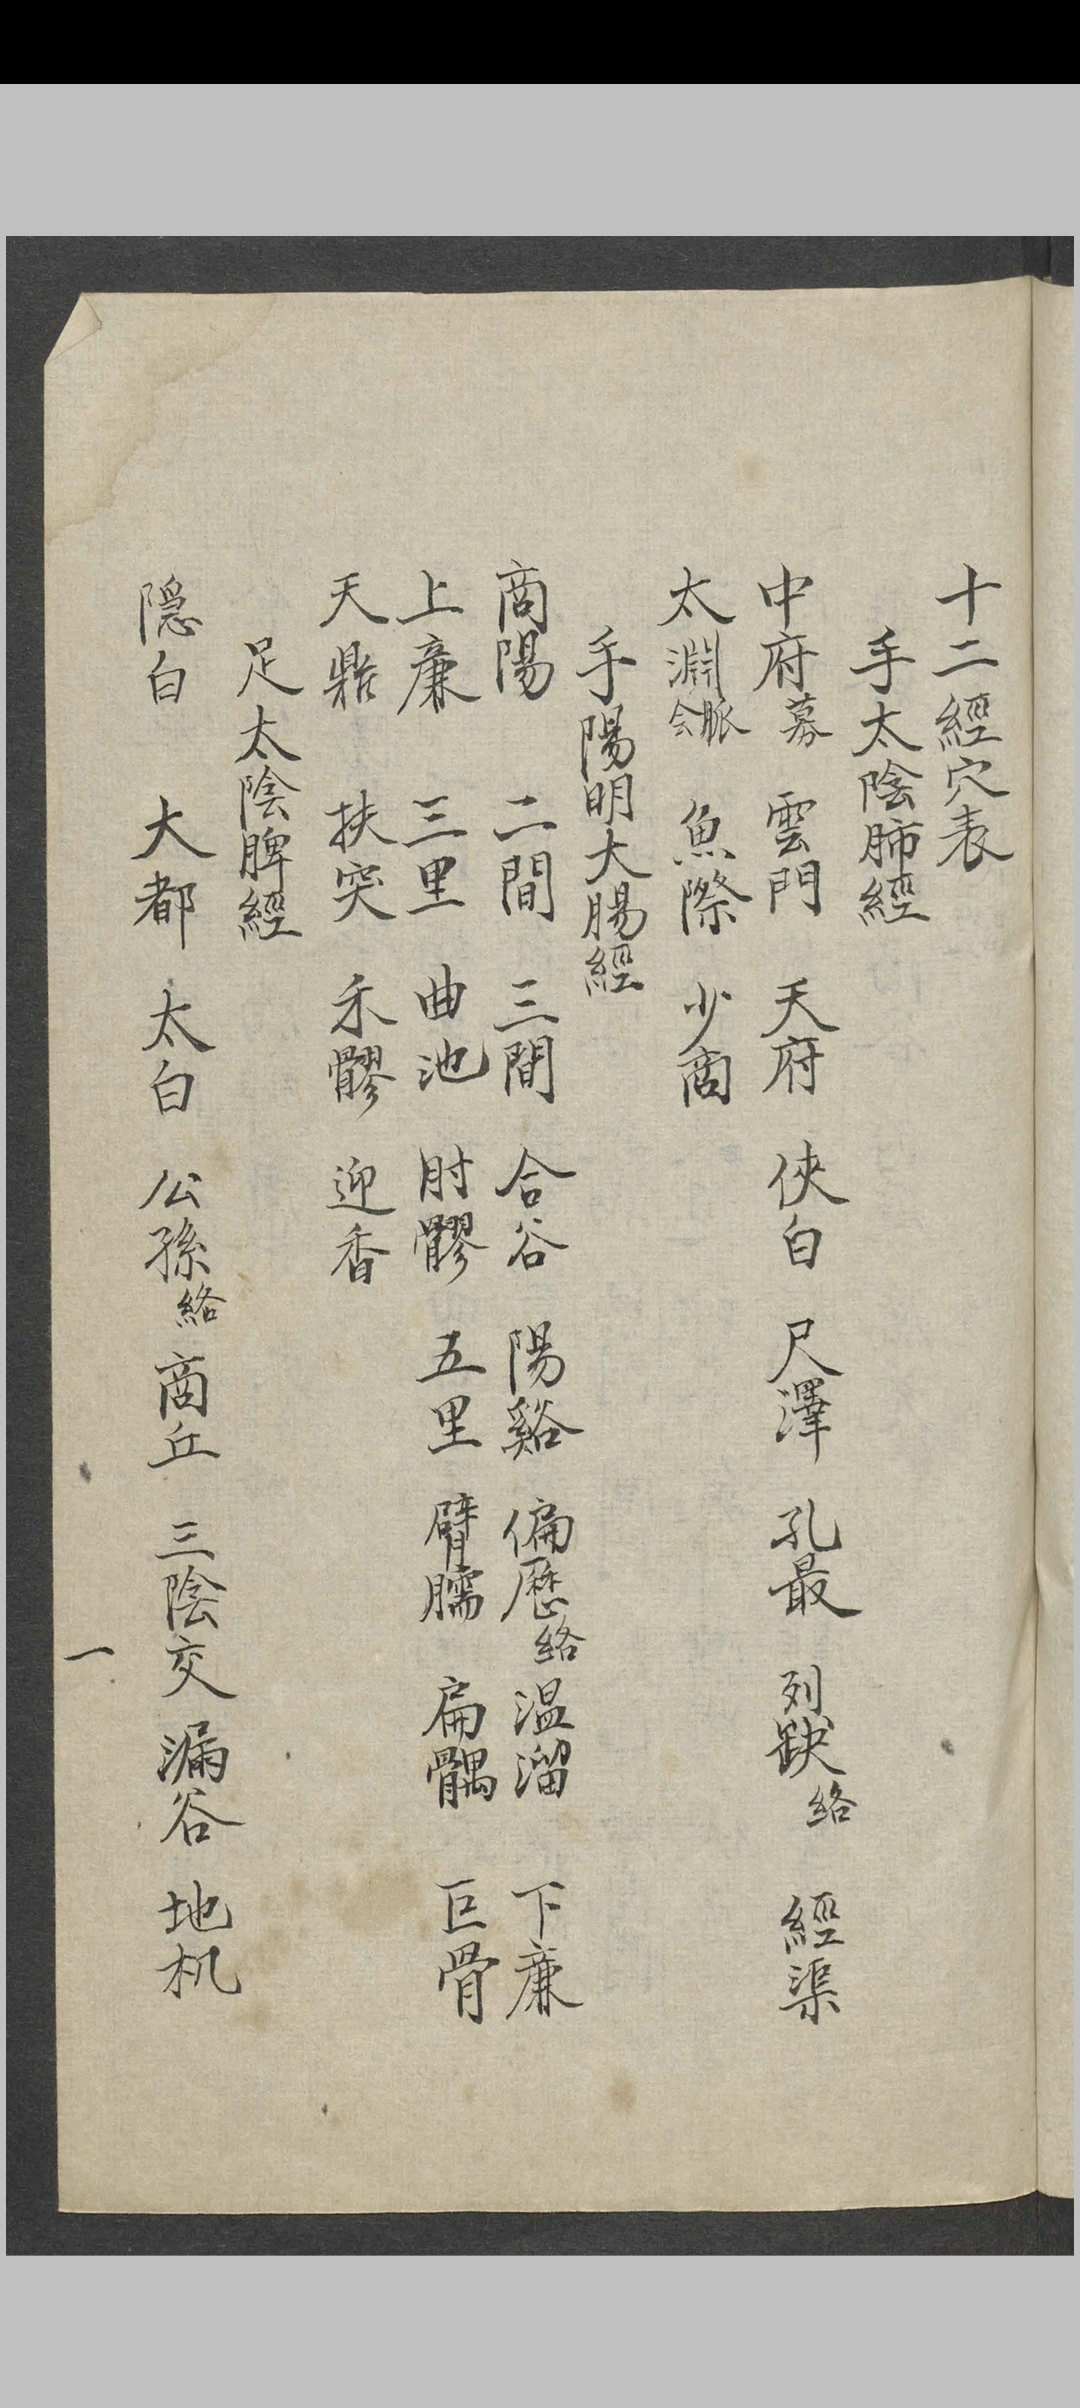 十二經穴表
手太陰肺經
中府募 雲門 天府 俠白 尺澤 孔最 列缺絡 經渠
太淵脈会 魚際 少商
手陽明大腸經
商陽 二間 三間 合谷 陽谿 偏歷絡 温溜 下廉
上廉 三里 曲池 肘髎 五里 臂臑 扁髃 巨骨
天鼎 扶突 禾髎 迎香
足太陰脾經
隠白 大都 太白 公孫絡 商丘 三陰交 漏谷 地机
一